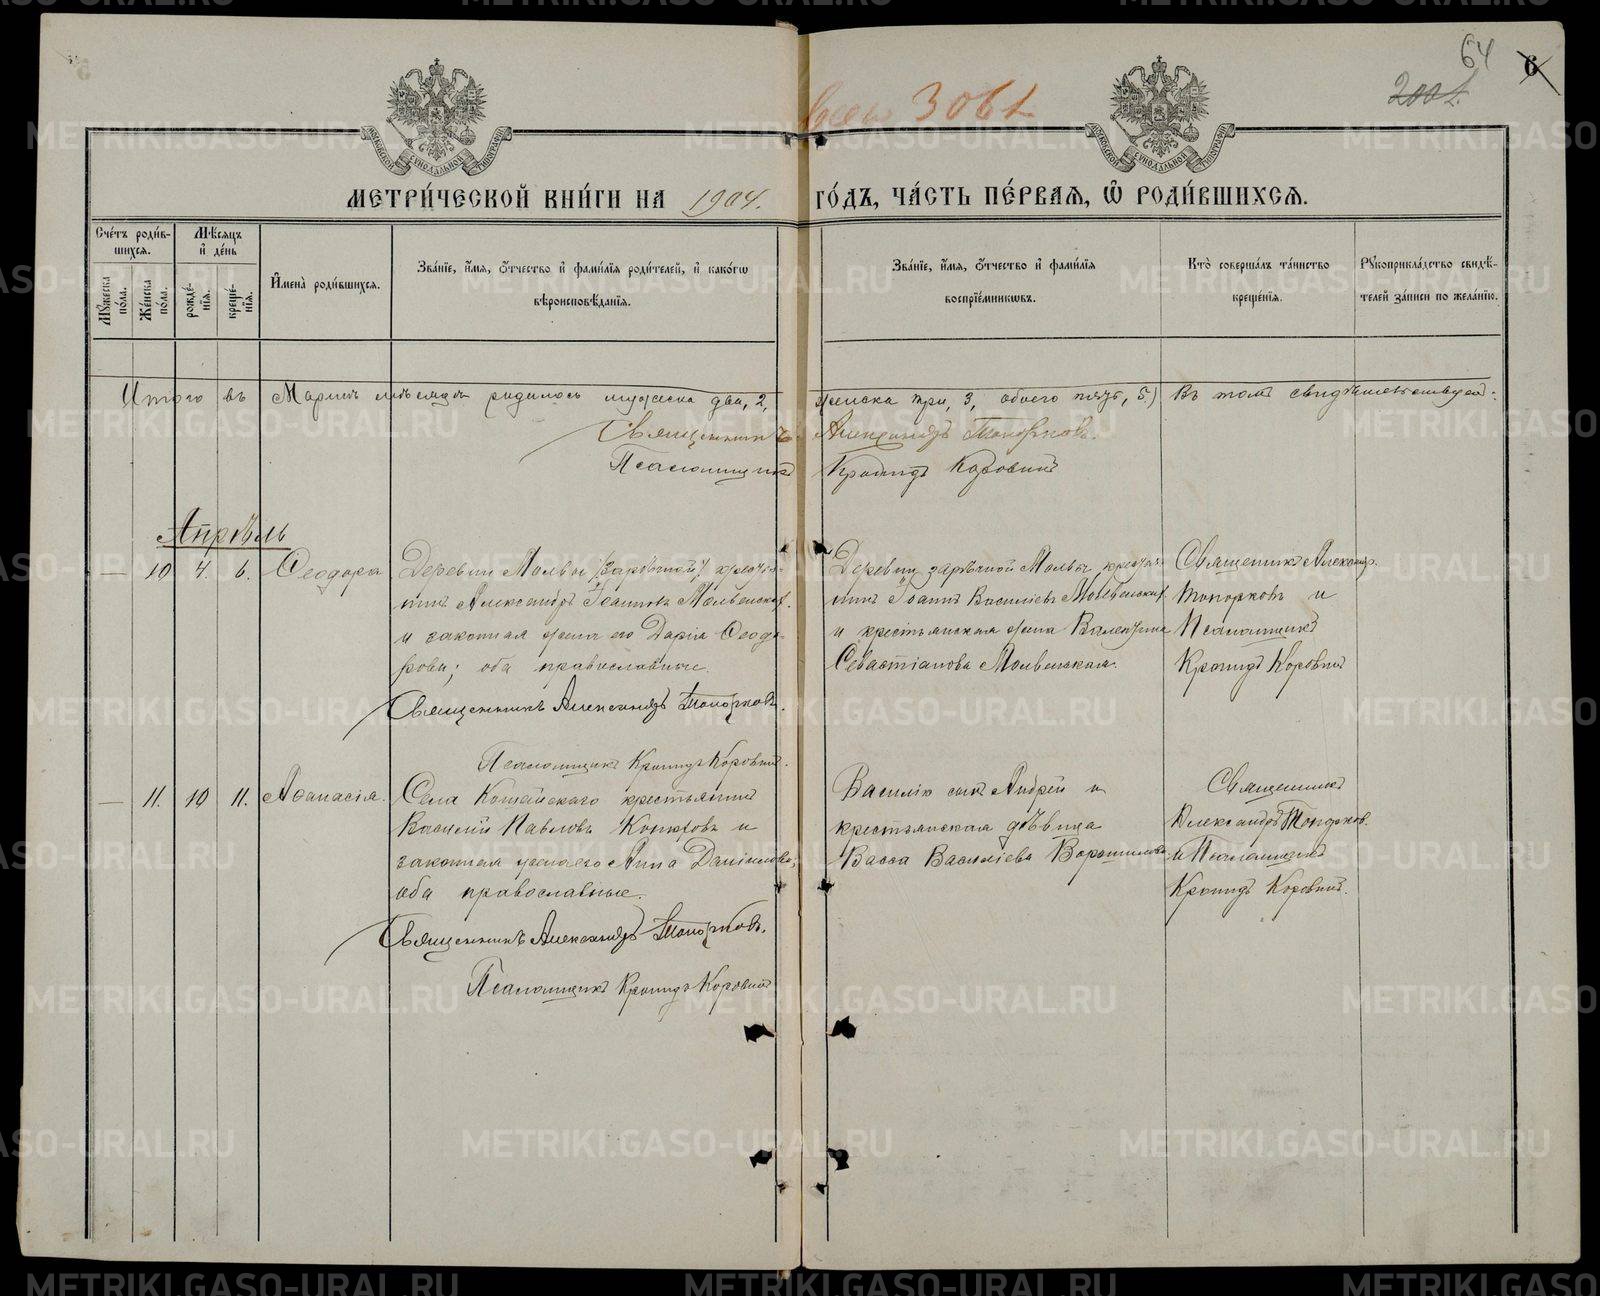 64
6
200 л.
3061
МЕТРИ́ЧЕСКОЙ КНИ́ГИ НА 1904. ГО́ДЪ, ЧА́СТЬ ПЕ́РВАЯ, Ѽ РОДИ́ВШИХСЯ.
Сче́тъ роди́в-
шихся.
Мꙋ́жеска по́ла.
Же́нска по́ла.
Мѣ́сяцъ и҆ де́нь
рожде́-
нїѧ.
креще́-
нїѧ.
И҆мена̀ роди́вшихся.
Зва́нїе, и҆́мя, ѻ҆́тчество и҆ фами́лїя роди́телей, и҆ како́гѡ
вѣроисповѣ́данїя.
Зва́нїе, и҆́мя, ѻ҆́тчество и҆ фами́лїя
воспрїе́мникѡвъ.
Кто̀ соверша́лъ та́инство
креще́нїя.
Рꙋкоприкла́дство свидѣ́-
телей за́писи по жела́нїю.
Итого въ Мартѣ мѣсяцѣ родилось мужеска два, 2, женска три, 3, обоего пять, 5.) Въ томъ свидѣтельствуемъ:
Священникъ Александръ Топорковъ.
Псаломщикъ Кронидъ Коровинъ
Апрѣль
— 10 4. 6. Ѳеодора
Деревни Мольвы /Зарѣчной/, крестья-
нинъ Александръ Іоанновъ Мольвинскихъ.
и законная жена его Дарія Ѳеодо-
рова; оба православные.
Священникъ Александръ Топорковъ.
Псаломщикъ Кронидъ Коровинъ.
Деревни зарѣчной Мольвы крестья-
нинъ Іоаннъ Васильевъ Мольвинскихъ
и крестьянская жена Валентина
Севастіанова Мольвинская.
Священникъ Александр.
Топорковъ и
Псаломщикъ
Кронидъ Коровинъ
— 11. 10 11. Аѳанасія.
Села Кошайскаго крестьянинъ
Василій Павловъ и
законная жена его Анна Даніилова;
оба православные.
Священникъ Александръ Топорковъ.
Псаломщикъ Кронидъ Коровинъ
сынъ Андрей и
крестьянская дѣвица
Васса Васильева Ворошилова
Священникъ
Александръ Топорков.
и Псаломщикъ
Кронидъ Коровинъ.
METRIKI.GASO-URAL.RU